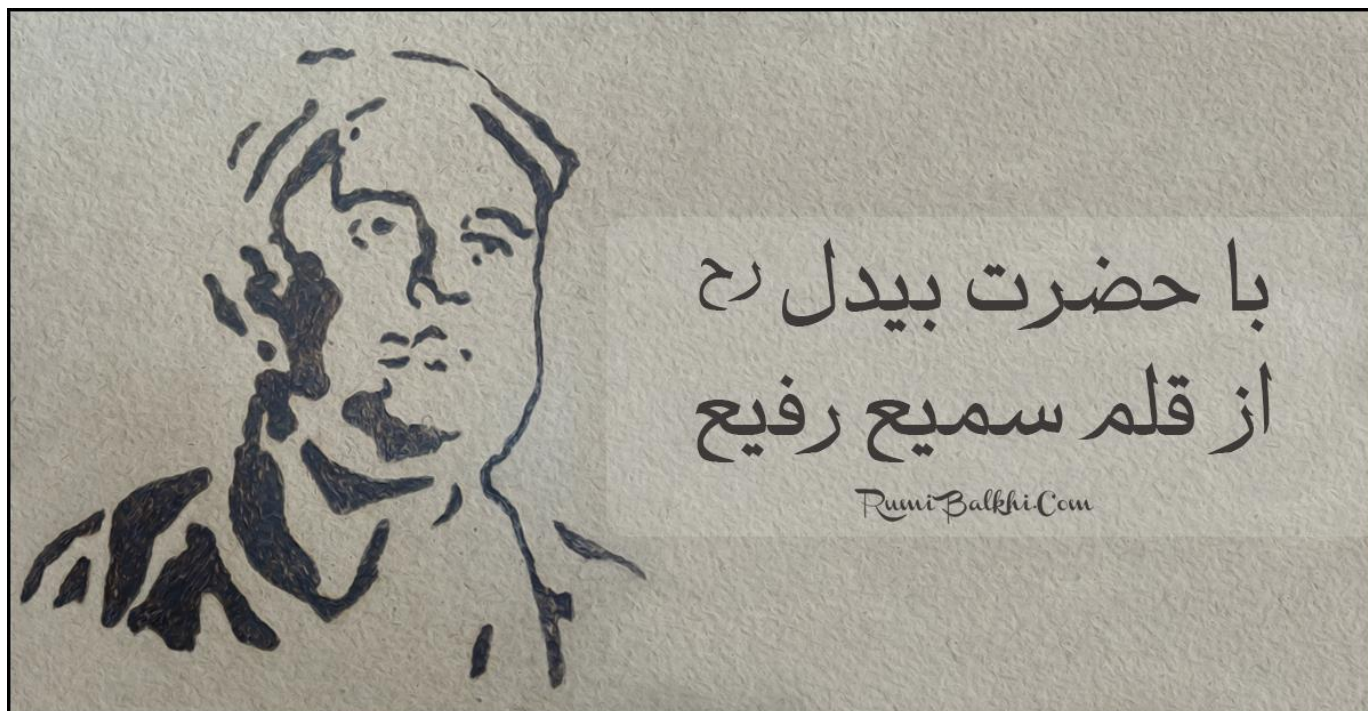 با حضرت بیدل رح
از قلم سمیع رفیع
RumiBalkhi.Com